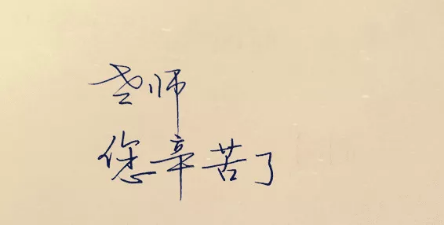 老师
您辛苦了